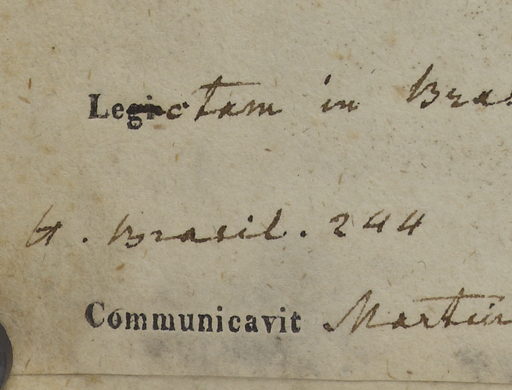 Lectam in Bras
H. Brasil. 244
Communicavit Martiu